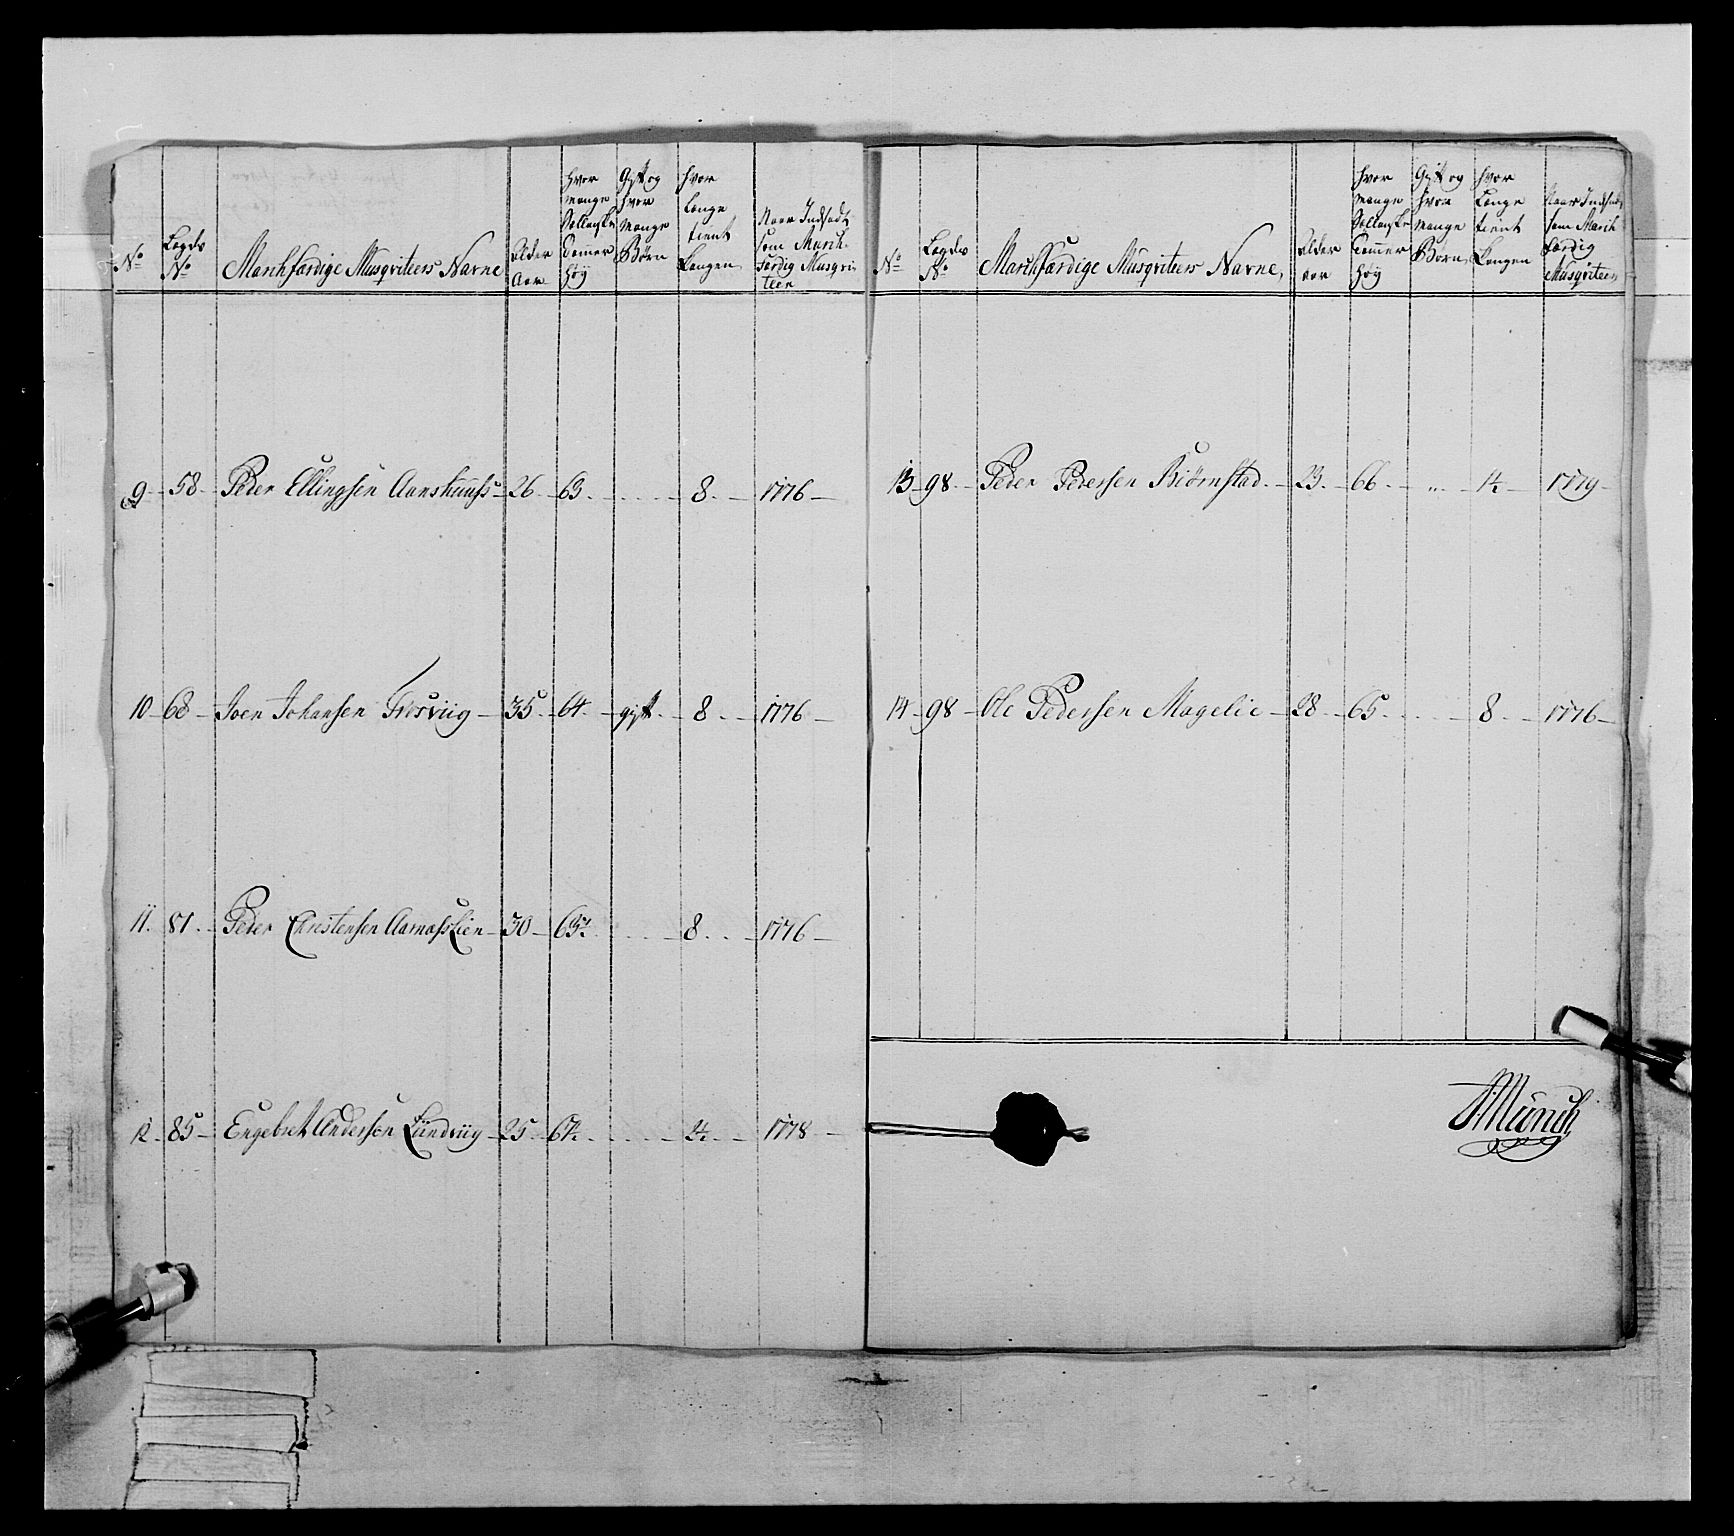 No
Lægds No
Marchfærdige Musqviteers Navne
Alder Aar
hvor mange Sællanske Tommer høÿ
Gift og hvor mange Børn
hvor længe tient Kongen
Naar Indsadt som Marchfærdig Musqviteer
9 58 Peder Ellingsen 26 63 8 1776
10 68 Joen Johansen 35 64 gift 8 1776
11 81 Peder Christensen 30 8 1776
12 85 Engebret Andersen Lündviig 25 1778
No
Lægds No
Marchfærdige Musqviteers Navne,
Alder aar
hvor mange Sællanske Tommer høÿ
Gift og hvor mange Børn
hvor Længe tient Kongen
Naar Indsadt som March færdig Musqviteer
13 98 Peder Pedersen Biørnstad 23 66 „ 1½ 1779
14 98 Ole Pedersen Magelie 28 65 8 1776
Münch